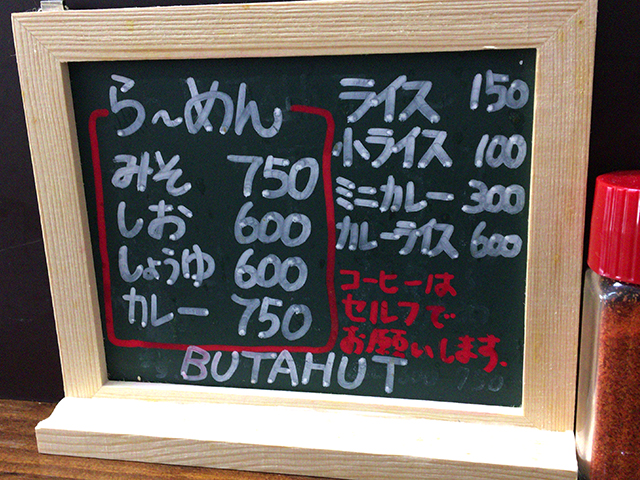 ら〜めん
みそ 750
しお 600
しょうゆ 600
カレー 750
ライス 150
小ライス 100
ミニカレー 300
カレーライス 600
コーヒーは
セルフで
お願いします.
BUTAHUT